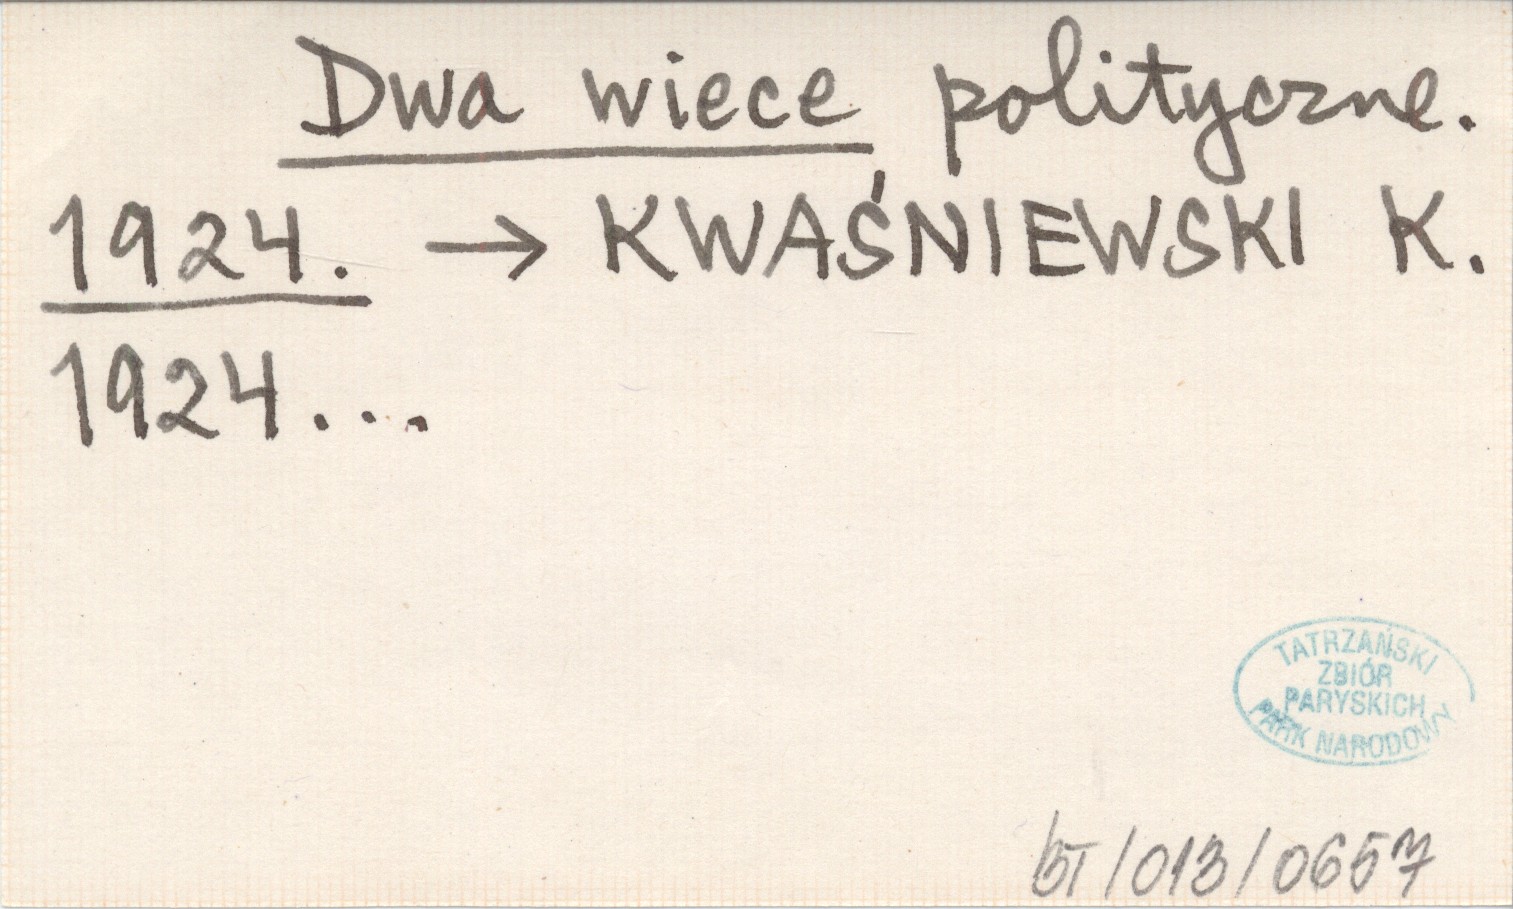 Dwa wiece polityczne.
1924. → KWAŚNIEWSKI K.
1924...
TATRZAŃSKI
ZBIÓR
PARYSKICH
PARK NARODOWY
BT/013/0657